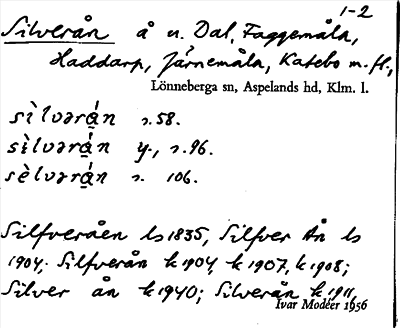 1-2
Silverån å u. Dal, Faggemåla,
Haddarp, Järnemåla, Katebo m.fl.,
Lönneberga sn, Aspelands hd, Klm. l.
sìlvərá̱n s.58.
sìlvərá̱n y., s.96.
sèlvərá̱n s. 106.
Silfveråen ls 1835, Silfver Ån ls
1904; Silfverån k 1904, k 1907, k 1908;
Silver ån k 1940; Silverån k 1911,
Ivar Modéer 1956